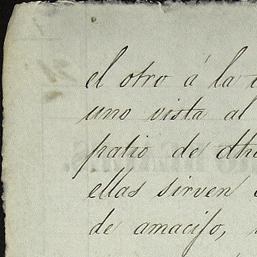 el otro á la
uno vista al
patio de dho
ellas sirven
de amaciso,